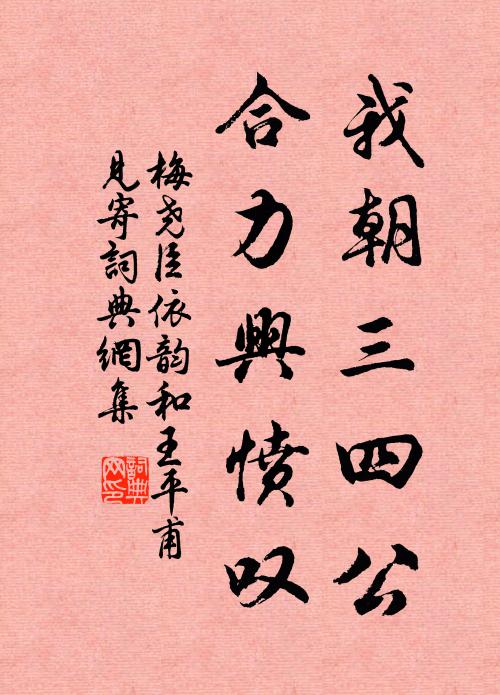 我朝三四公
合力興憤叹
梅尧臣依韵和王平甫
見寄詞典網集
詞典
网印